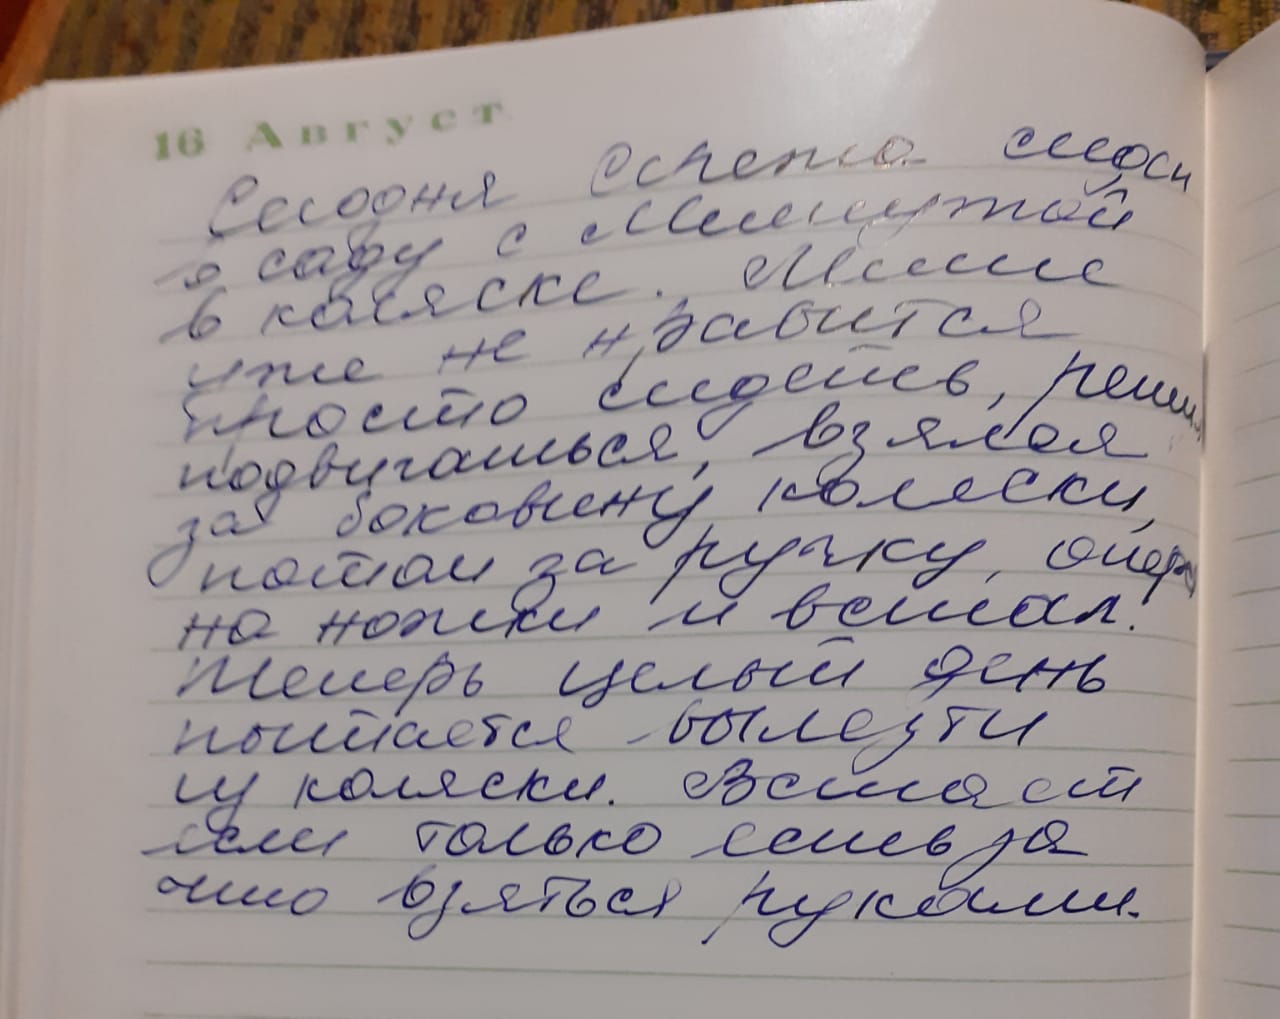 16 Август
Сегодня сижу
в саду с Мишуткой
в коляске. Мише
уже не нравится
просто сидеть, решил
подвигаться, взялся
за боковину коляски,
потом за ручку, опёрся
на ножки и встал.
Теперь целый день
пытается вылезти
из коляски. Встаёт
сам только есть за
что взяться руками.